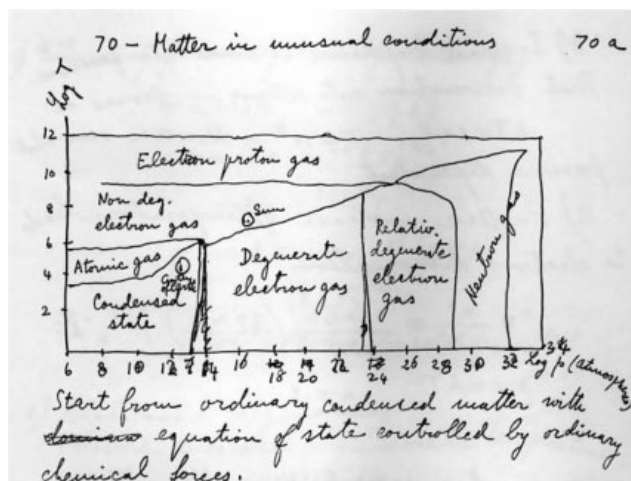 70 - Matter in unusual conditions 70 a
Log T
12
Electron proton gas
10
Non deg.
electron gas
8
Sun
6
Atomic gas
Degenerate
electron gas
Relativ.
degenerate
electron
gas
Neutron gas
4
Condensed
state
2
6 8 10 12 14 16 18 20 22 24 26 28 30 32 34
Log p (atmospheres)
Start from ordinary condensed matter with
equation of state controlled by ordinary
chemical forces.